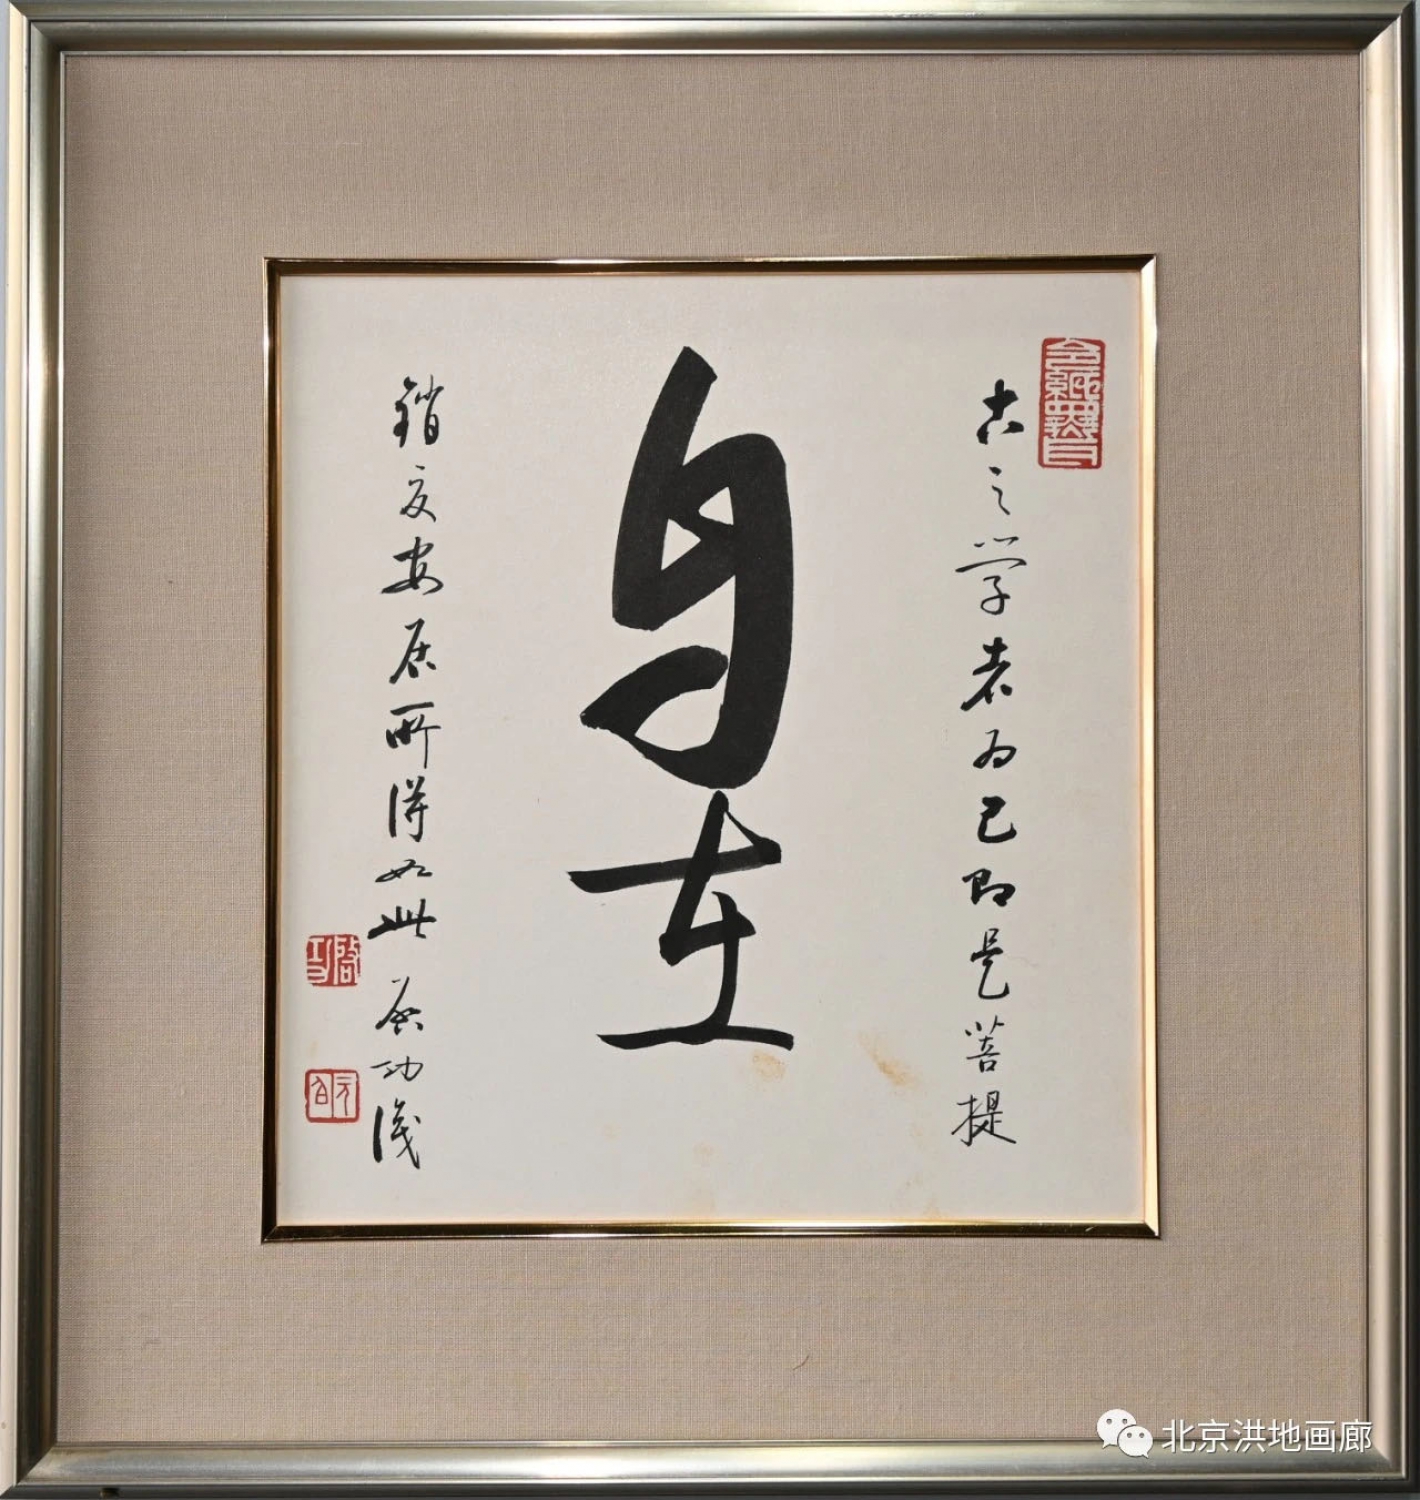 古之学者为己即是菩提
自在
销夏安居所得如此 启功识
启功
元白
北京洪地画廊